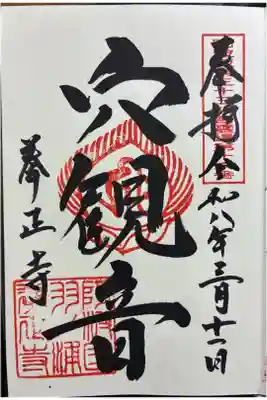 奉拝 令和八年三月十一日
穴観音
拳正寺